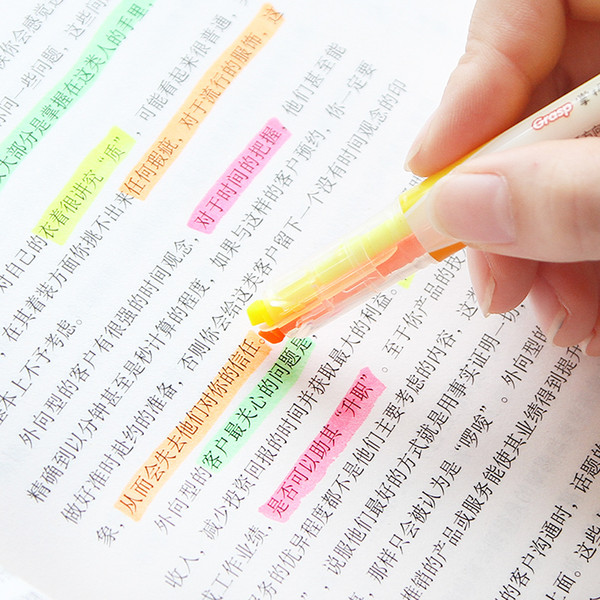 你会感觉这
你问一些问题，这些问
大部分是掌握在这类人的手里，
对自己的衣着很讲究“质”，可能看起来很普通，
，在其着装方面你挑不出来任何瑕疵，对于流行的服饰，这
基本上不予考虑。
外向型的客户有很强的时间观念，对于时间的把握，他们甚至能
精确到以分钟甚至是秒计算的程度，如果与这样的客户预约，你一定要
做好准时赴约的准备，否则你会给这类客户留下一个没有时间观念的印
象，从而会失去他们对你的信任。
外向型的客户最关心的问题是
收入，减少投资回报的时间并获取最大的利益。
工作业绩，是否可以助其“升职”。至于你产品的技
服务的优异程度都不是他们主要考虑的内容，这
，说服他们最好的方式就是用事实证明一切
，那样只会被认为是“啰唆”。外向
推销的产品或服务能使其业绩得到提升
的客户沟通时，话题的
上面。这些
Grasp